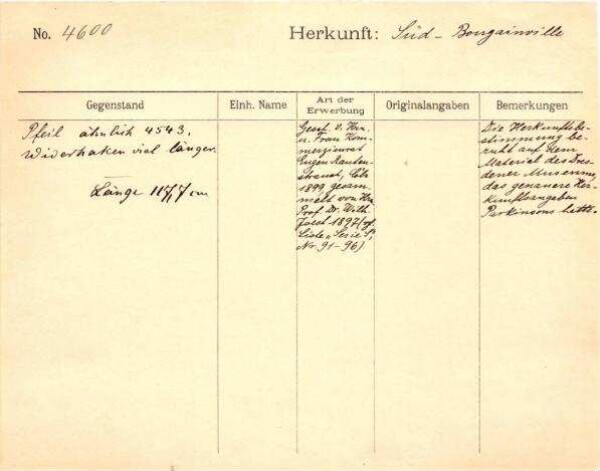 No. 4600
Herkunft: Süd - Bougainville
Gegenstand
Einh. Name
Art der
Erwerbung
Originalangaben
Bemerkungen
Pfeil ähnlich 4543,
Widerhaken viel länger.
Länge 117,7 cm
Gesch. v. Hrn.
u. Frau Kom-
merzienrat
Eugen Rauten-
strauch, Cöln
1899 gesam-
melt von Hrn
Prof. Dr. Wilh.
Joest 1897 (vgl.
Liste, Serie S,
Nr. 91-96)
Die Herkunftsbe-
stimmung be-
ruht auf dem
Material des Dres-
dener Museums,
das genauere Her-
kunftsangaben
Parkinsons hatte.